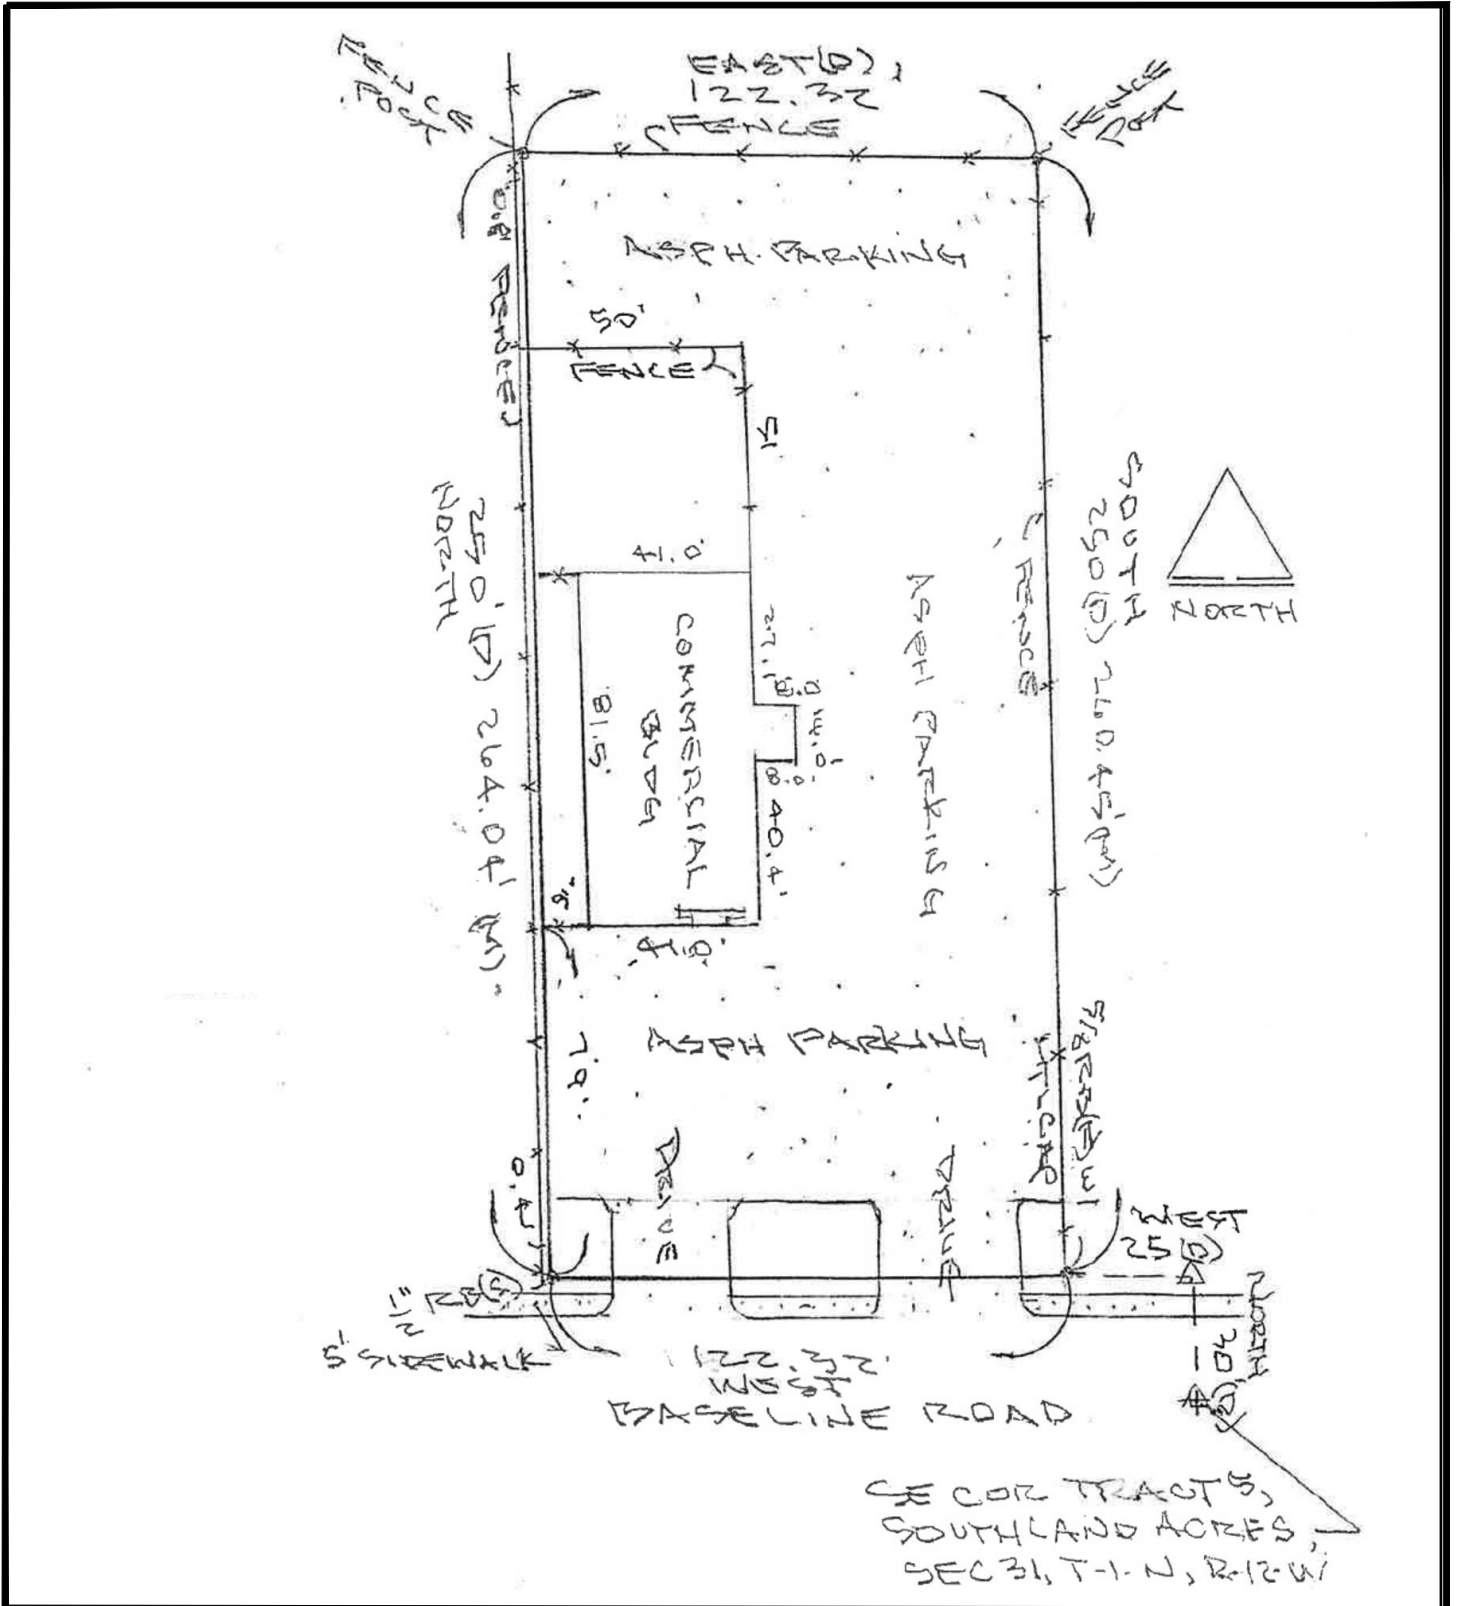 FENCE
POST
EAST (D),
122.32
FENCE
FENCE
POST
0.8'
FENCE
ASPH. PARKING
50'
FENCE
51
NORTH
250' (D) 264.04' (M)
41.0'
COMMERCIAL
BLDG
81.5'
27.1
8.0
14.0'
8.0'
40.4'
9'
41.0'
ASPH PARKING
FENCE
SOUTH
250 (D) 260.45' (M)
NORTH
ASPH PARKING
78'
0.4'
DRIVE
DRIVE
5/8 RB (F) W/
CAP
WEST
25 (D)
NORTH
40' (D)
1/2" RB (S)
5' SIDEWALK
122.32'
WEST
BASELINE ROAD
SE COR TRACT 5,
SOUTHLAND ACRES,
SEC 31, T-1-N, R-12-W